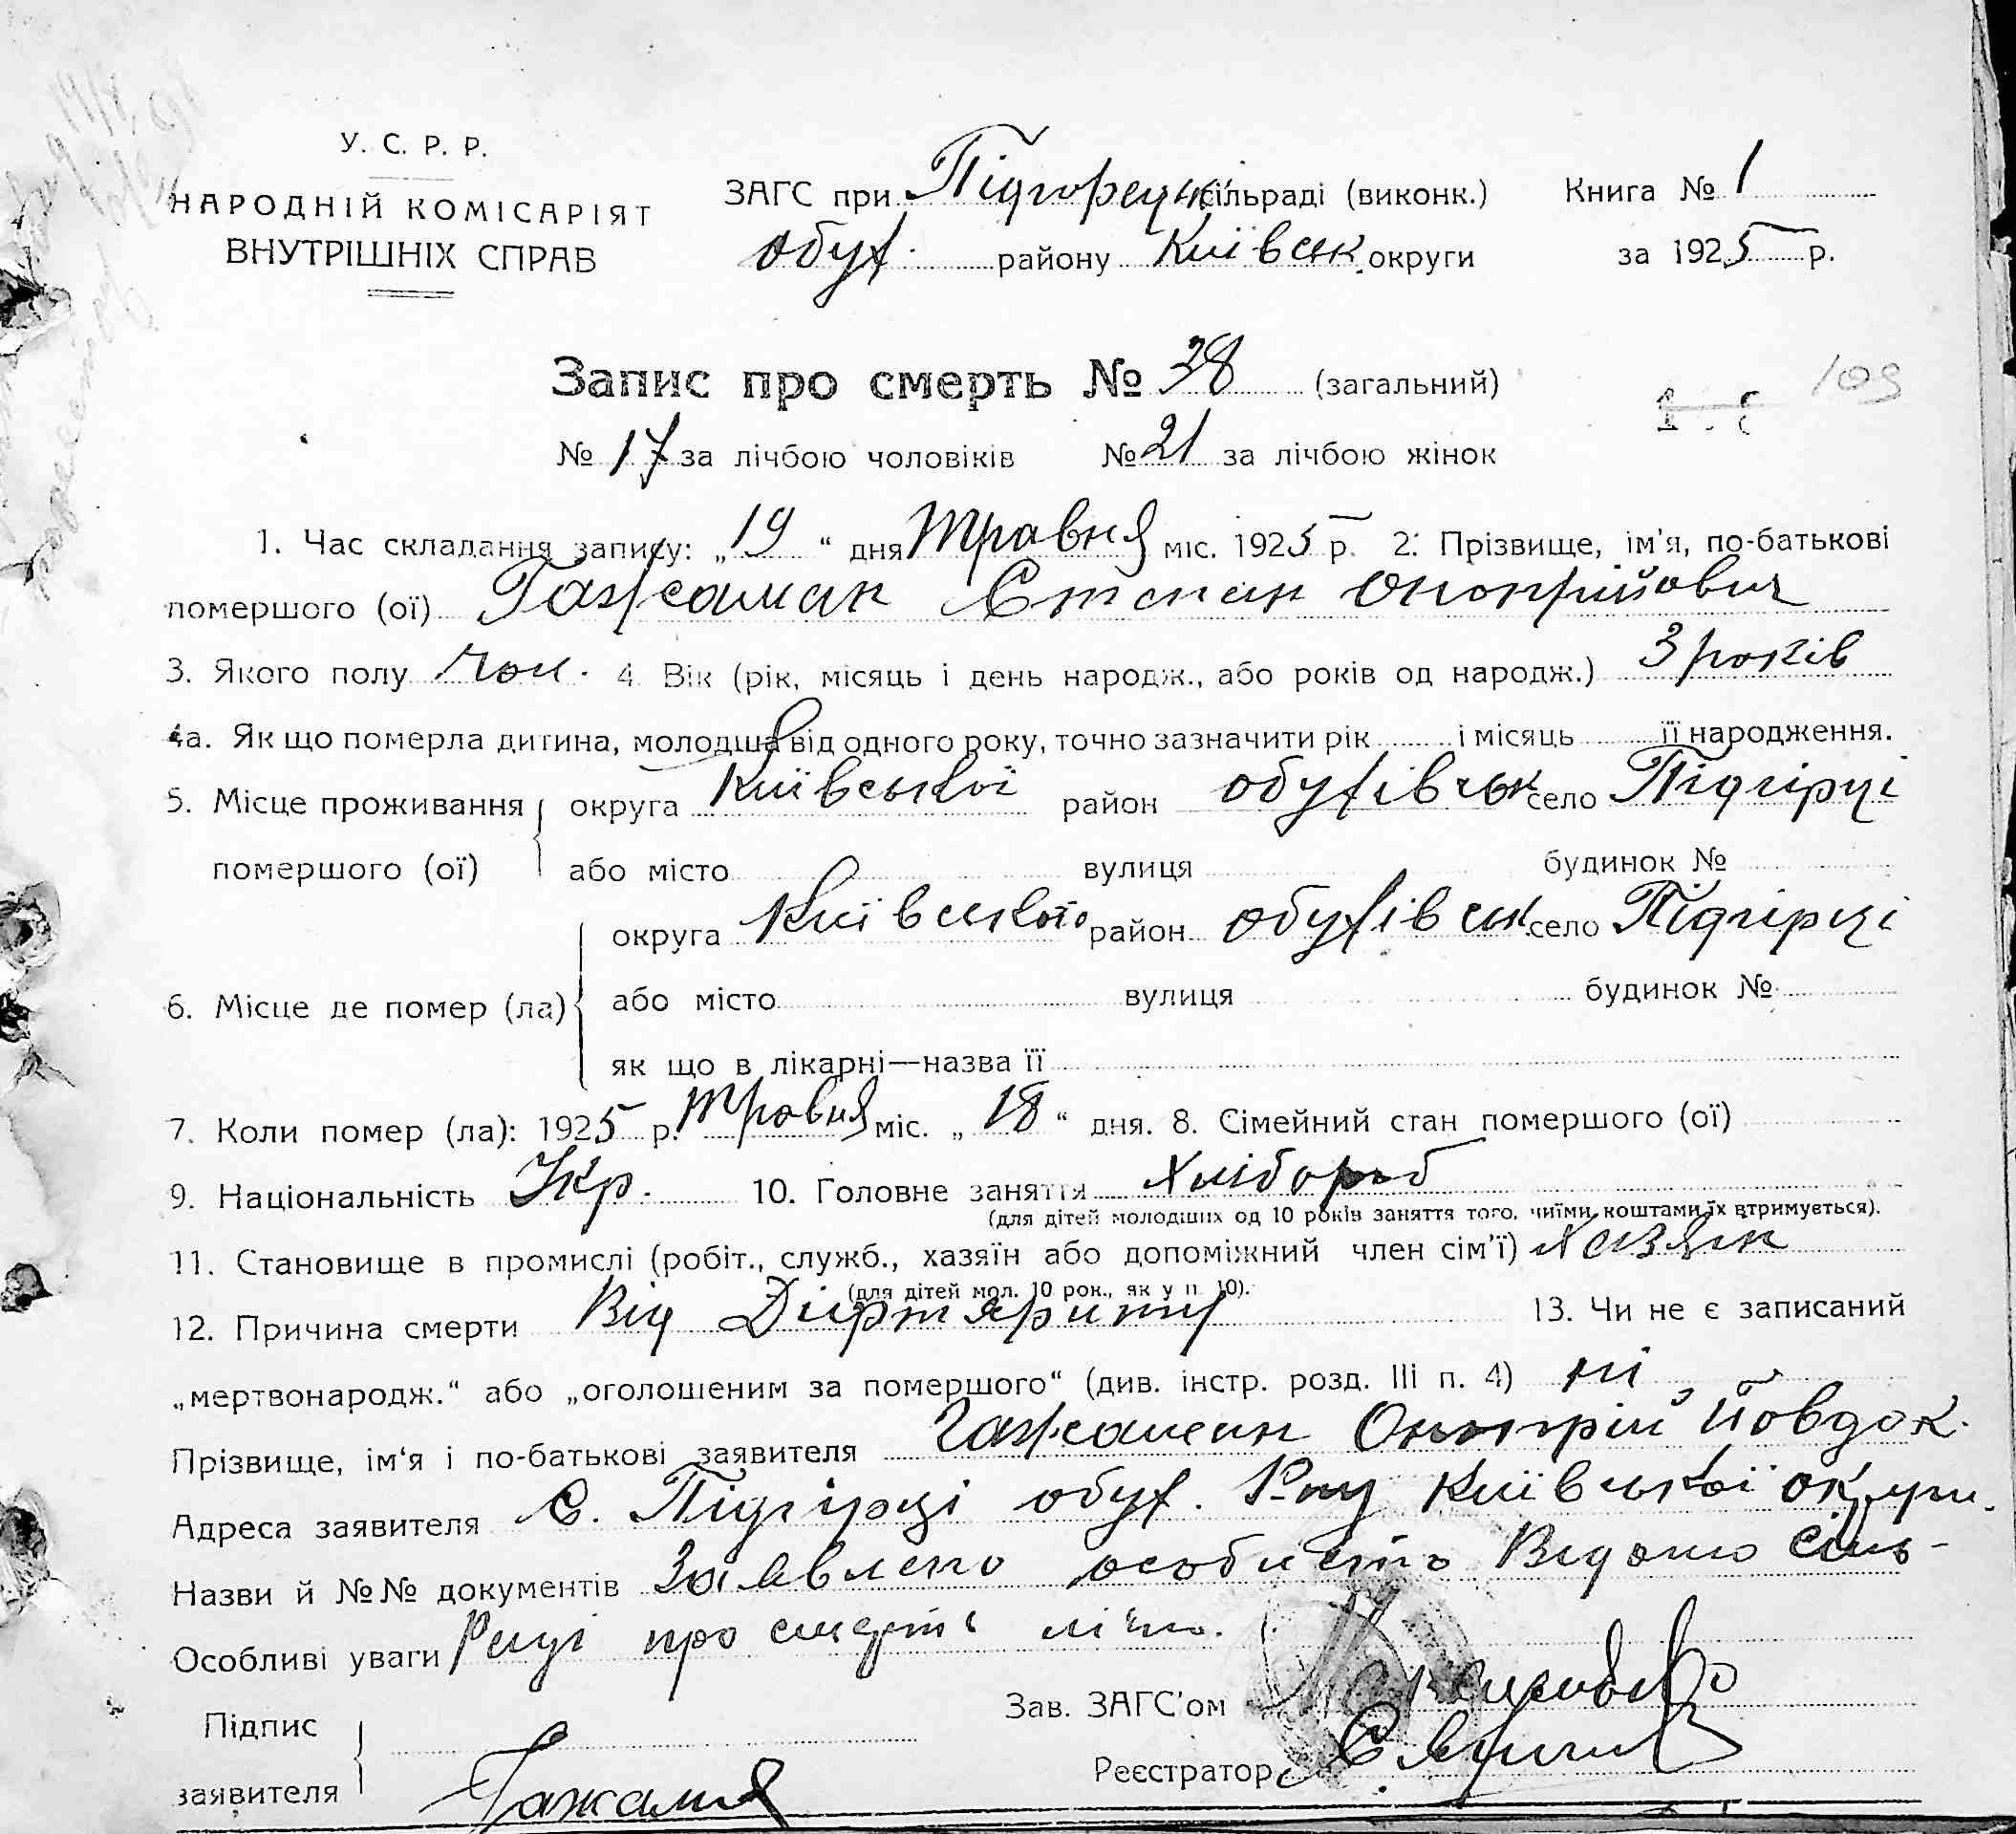 У. С. Р. Р.
НАРОДНІЙ КОМІСАРІЯТ
ВНУТРІШНІХ СПРАВ
ЗАГС при Підгорецьк сільраді (виконк.) Книга № 1
обух. району Київськ. округи за 1925 р.
Запис про смерть № 38 (загальний)
109
№ 17 за лічбою чоловіків № 21 за лічбою жінок
1. Час складання запису: „19“ дня Травня міс. 1925 р. 2. Прізвище, ім'я, по-батькові
помершого (ої) Гажаман Степан Онопрійович
3. Якого полу чол. 4. Вік (рік, місяць і день народж., або років од народж.) 3 років
4а. Як що померла дитина, молодша від одного року, точно зазначити рік і місяць її народження.
5. Місце проживання округа Київської район обухівськ село Підгірці
помершого (ої) або місто вулиця будинок №
округа Київського район обухівськ село Підгірці
6. Місце де помер (ла) або місто вулиця будинок №
як що в лікарні—назва її
7. Коли помер (ла): 1925 р. травня міс. „18“ дня. 8. Сімейний стан помершого (ої)
9. Національність Укр. 10. Головне заняття Хлібороб
(для дітей молодших од 10 років заняття того, чиїми коштами їх втримується).
11. Становище в промислі (робіт., служб., хазяїн або допоміжний член сім'ї) Хазяїн
(для дітей мол. 10 рок., як у п. 10).
12. Причина смерти Від Діфтяриту 13. Чи не є записаний
„мертвонародж.“ або „оголошеним за помершого“ (див. інстр. розд. III п. 4) ні
Прізвище, ім'я і по-батькові заявителя Гажаман Онопрій Йовдок.
Адреса заявителя С. Підгірці обух. Р-ну Київської округи.
Назви й №№ документів Заявлено особисто Відомо Сіль-
Особливі уваги Раді про смерть
Зав. ЗАГС'ом
Підпис
Реєстратор
заявителя Гажама